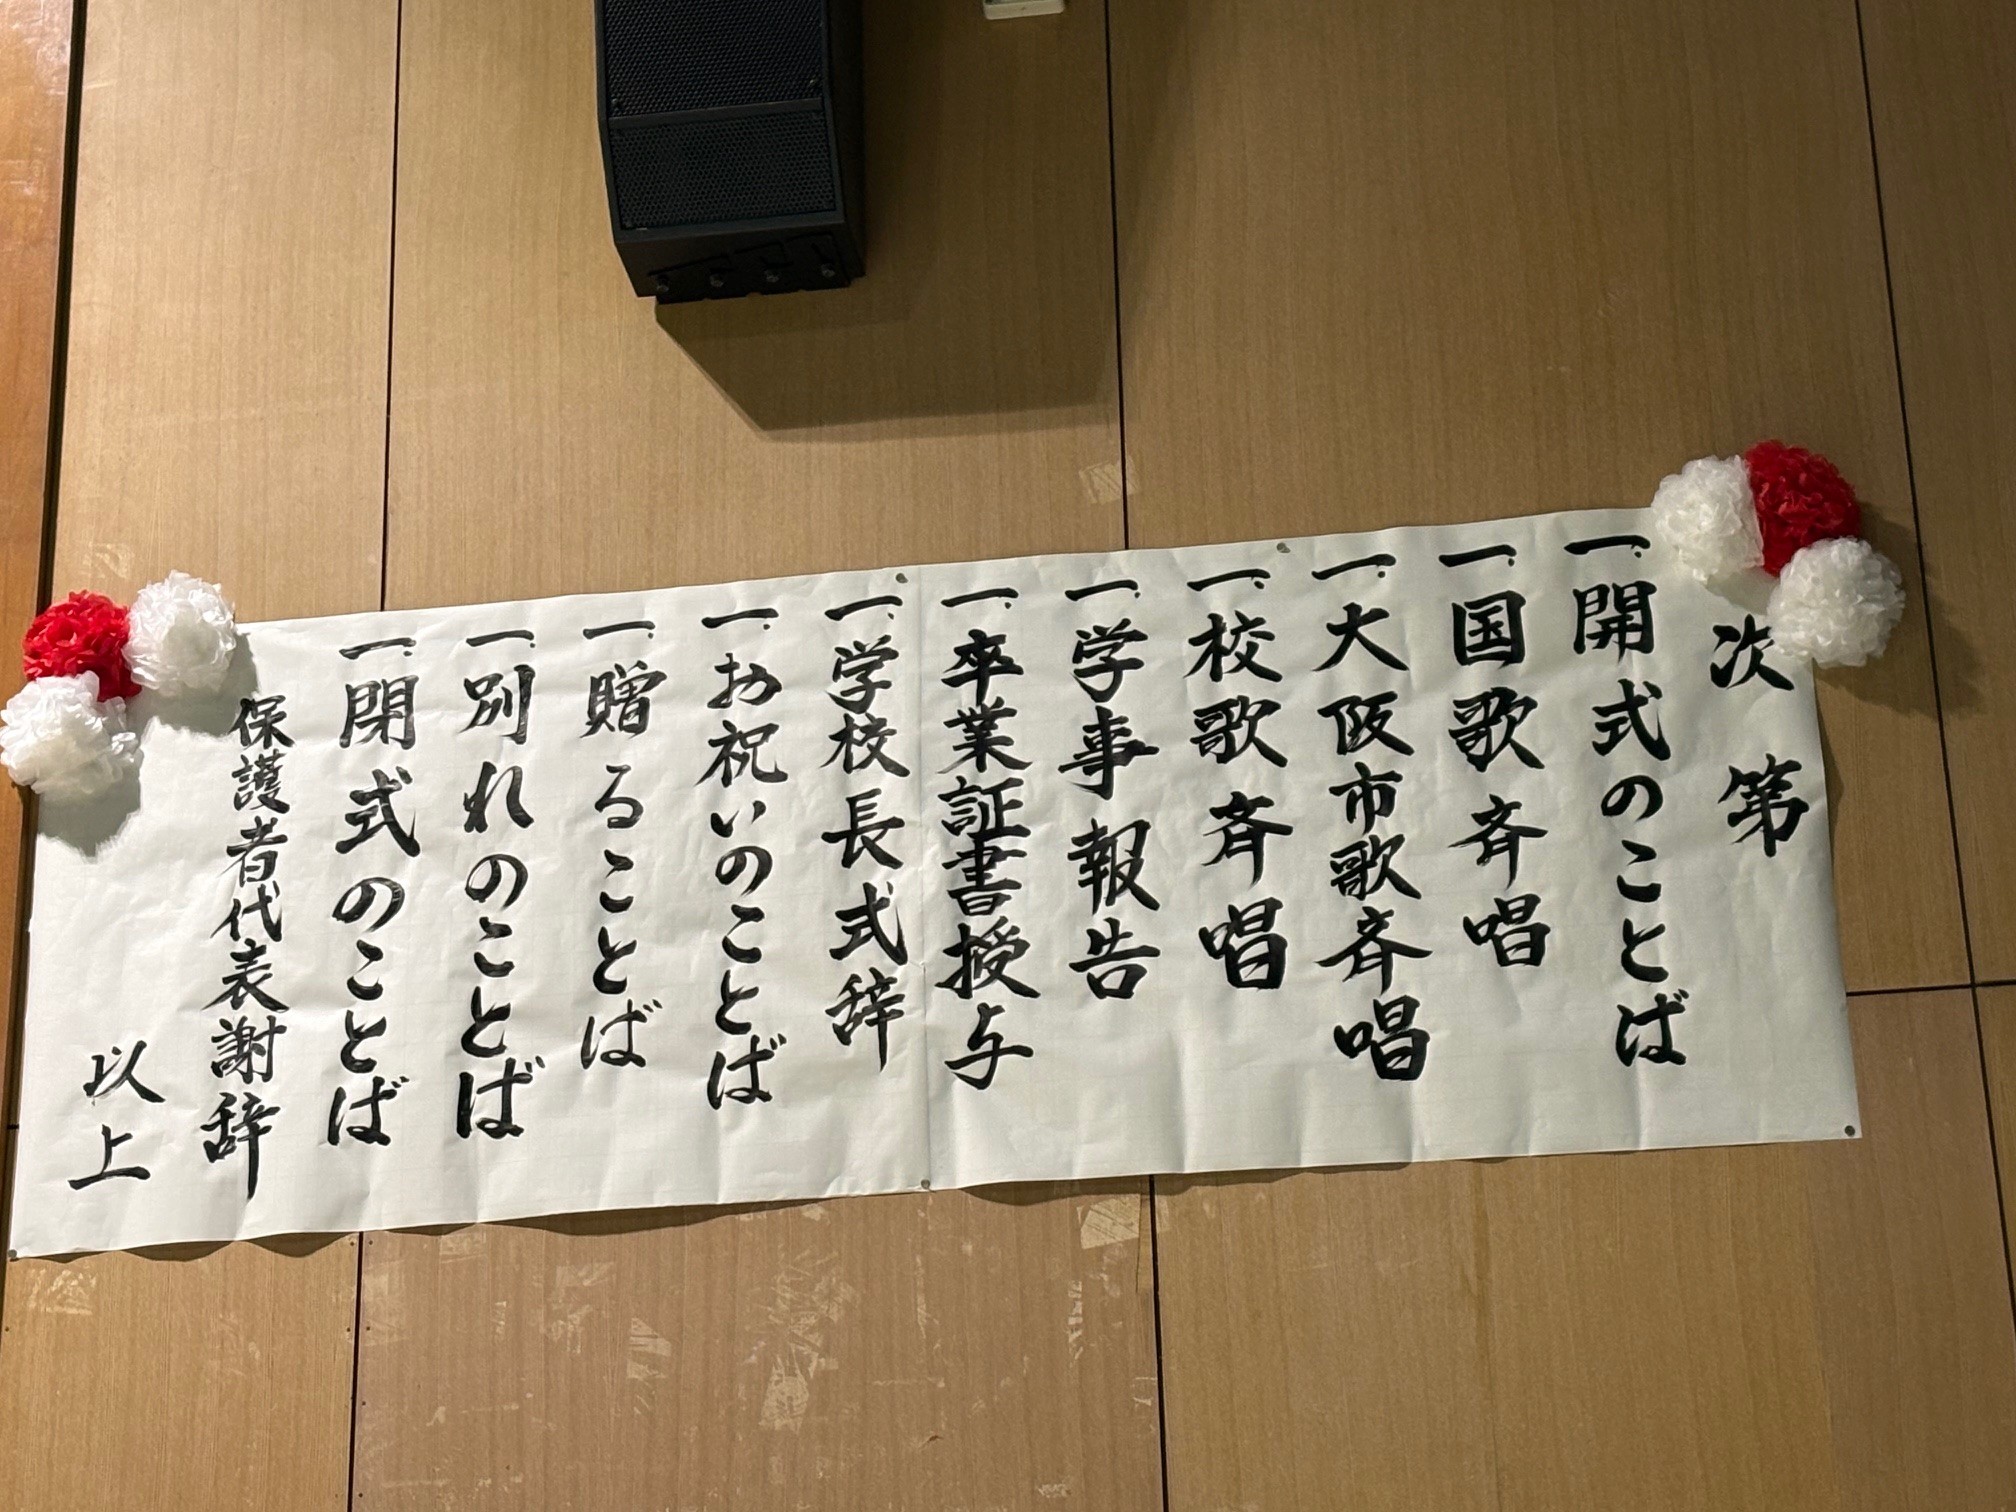 次第
一、開式のことば
一、国歌斉唱
一、大阪市歌斉唱
一、校歌斉唱
一、学事報告
一、卒業証書授与
一、学校長式辞
一、お祝いのことば
一、贈ることば
一、別れのことば
一、閉式のことば
保護者代表謝辞
以上